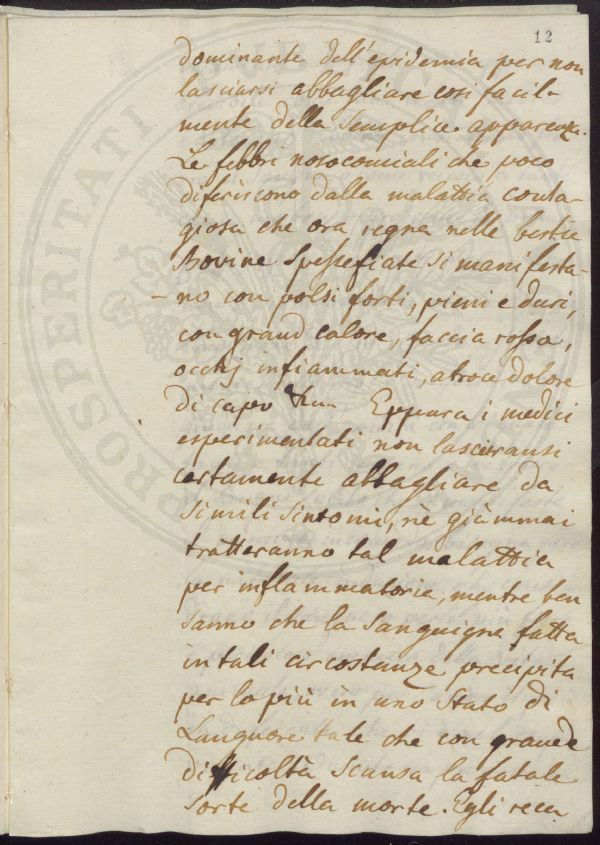 12
dominante dell'epidemia per non
lasciarsi abbagliare così facil-
mente della semplice apparenza.
Le febbri nosocomiali che poco
diferiscono dalla malattia conta-
giosa che ora regna nelle bestie
Bovine spessefiate si manifesta-
no con polsi forti, pieni e duri,
con grand calore, faccia rossa,
occhj infiammati, atroce dolore
di capo Eppure i medici
esperimentati non lascieransi
certamente abbagliare da
simili sintomi, nè giammai
tratteranno tal malattia
per inflammatoria, mentre ben
sanno che la sanguigna fatta
in tali circostanze precipita
per lo più in uno stato di
Languore tale che con grande
difficoltà scansa la fatale
sorte della morte. Egli reca
PROSPERITATI PUBLICA